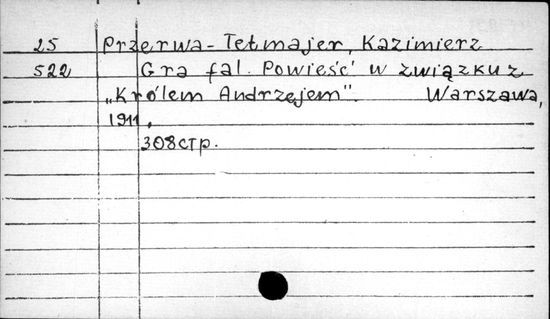 25 Przerwa-Tetmajer, Kazimierz
522 Gra fal. Powieść w związku z
„Królem Andrzejem". Warszawa,
1911.
308 стр.